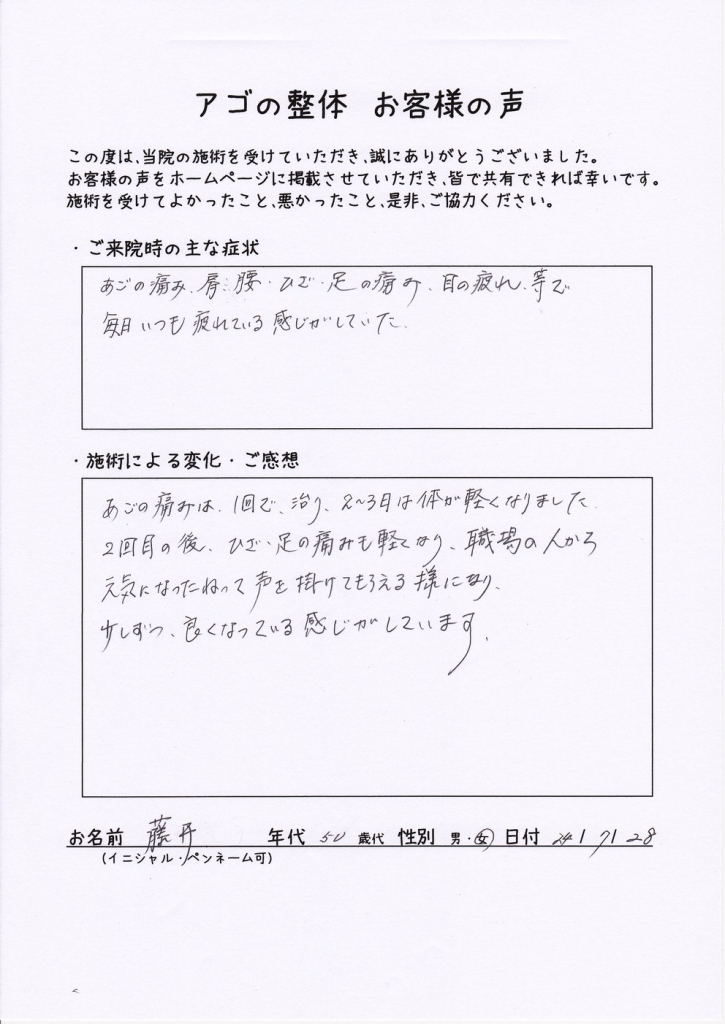 アゴの整体 お客様の声
この度は、当院の施術を受けていただき、誠にありがとうございました。
お客様の声をホームページに掲載させていただき、皆で共有できれば幸いです。
施術を受けてよかったこと、悪かったこと、是非、ご協力ください。
・ご来院時の主な症状
あごの痛み、肩・腰・ひざ・足の痛み、目の疲れ、等で
毎日いつも疲れている感じがしていた。
・施術による変化・ご感想
あごの痛みは、1回で、治り、2~3日は体が軽くなりました。
2回目の後、ひざ・足の痛みも軽くなり、職場の人から
元気になったねって声を掛けてもらえる様になり、
少しずつ、良くなっている感じがしています。
お名前 藤井 年代 50 歳代 性別 男・女 日付 24/7/28
(イニシャル・ペンネーム可)